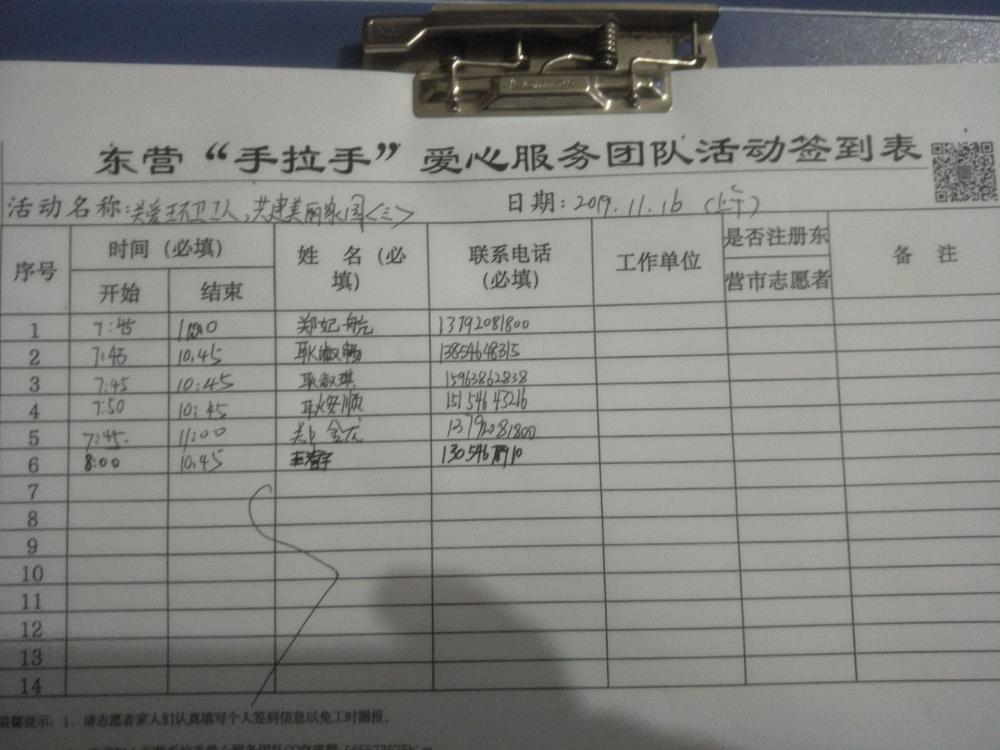 东营“手拉手”爱心服务团队活动签到表
活动名称:关爱环卫工人,共建美丽家园<三> 日期:2019.11.16 (上午)
序号 时间(必填) 姓名(必填) 联系电话(必填) 工作单位 是否注册东营市志愿者 备注
开始 结束
1 7:45 郑妃航 13792081800
2 7:45 10:45 耿淑畅 13854648315
3 7:45 10:45 耿淑琪 15963862838
4 7:50 10:45 耿安顺 15154643216
5 7:45 11:00 郑金龙 13792081800
6 8:00 10:45
7
8
9
10
11
12
13
14
温馨提示:1、请志愿者家人们认真填写个人签到信息以免工时漏报。